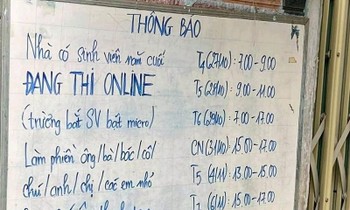 THÔNG BÁO
Nhà có sinh viên năm cuối T4(27/10): 7.00 - 9.00
ĐANG THI ONLINE T5(28/10): 9.00 - 11.00
(trường bắt SV bật micro) T6(29/10): 7.00 - 17.00
Làm phiền ông/bà/bác/cô/ CN(31/10): 15.00 - 17.00
chú/anh/chị/các em nhỏ T5(4/11): 13.00 - 15.00